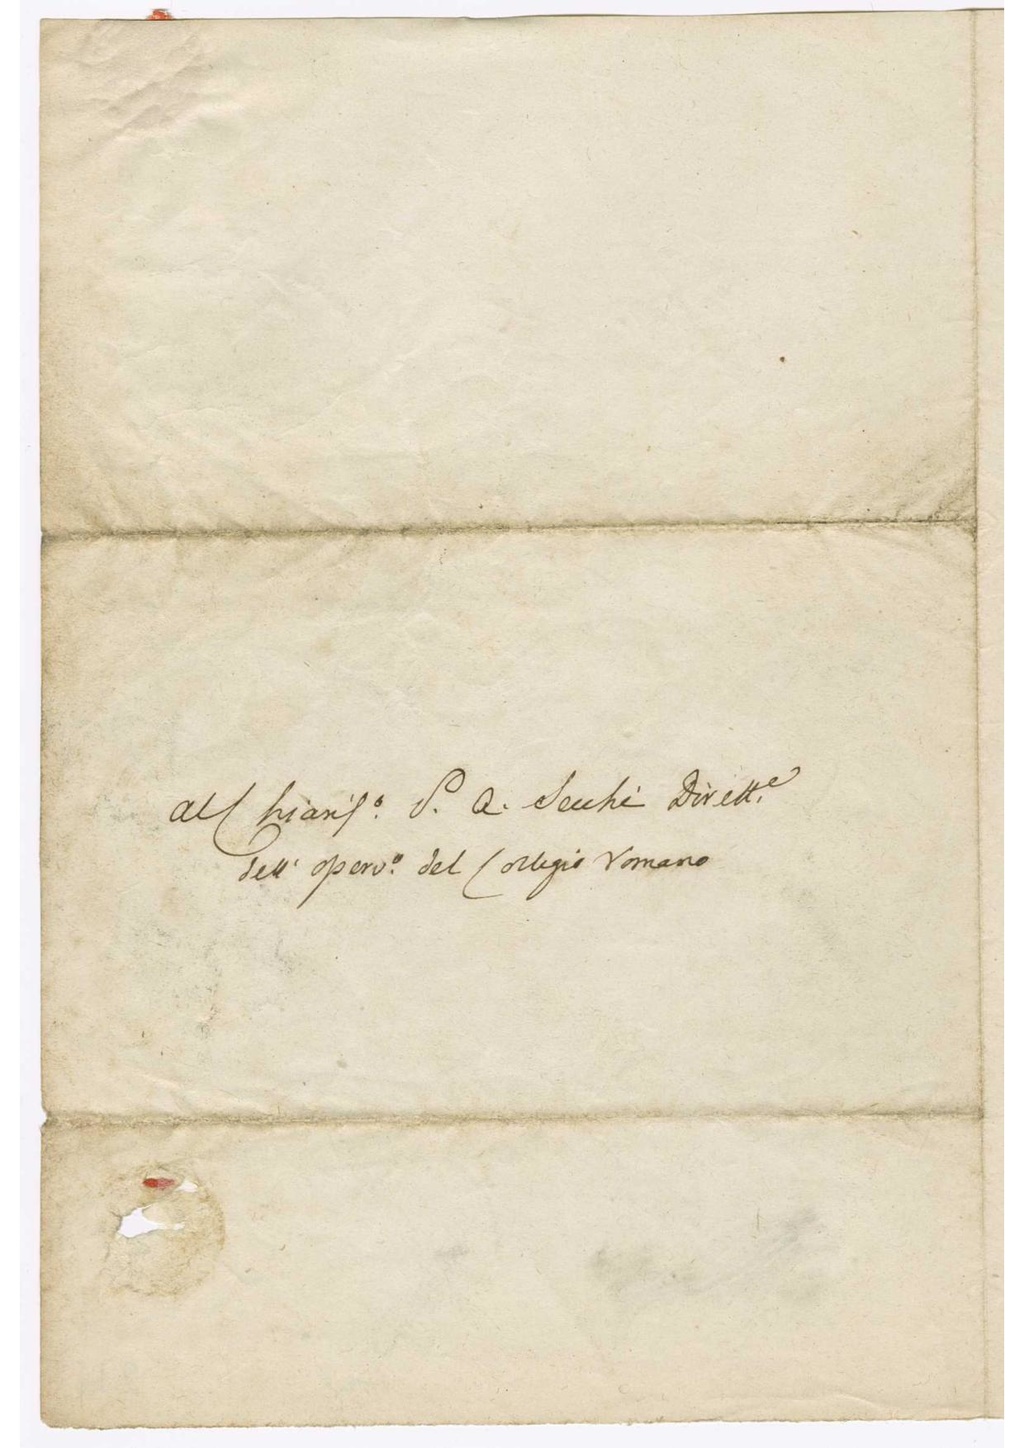 Al Chiariss.º P. A. Secchi Dirett.e
dell' osserv.º del Collegio Romano